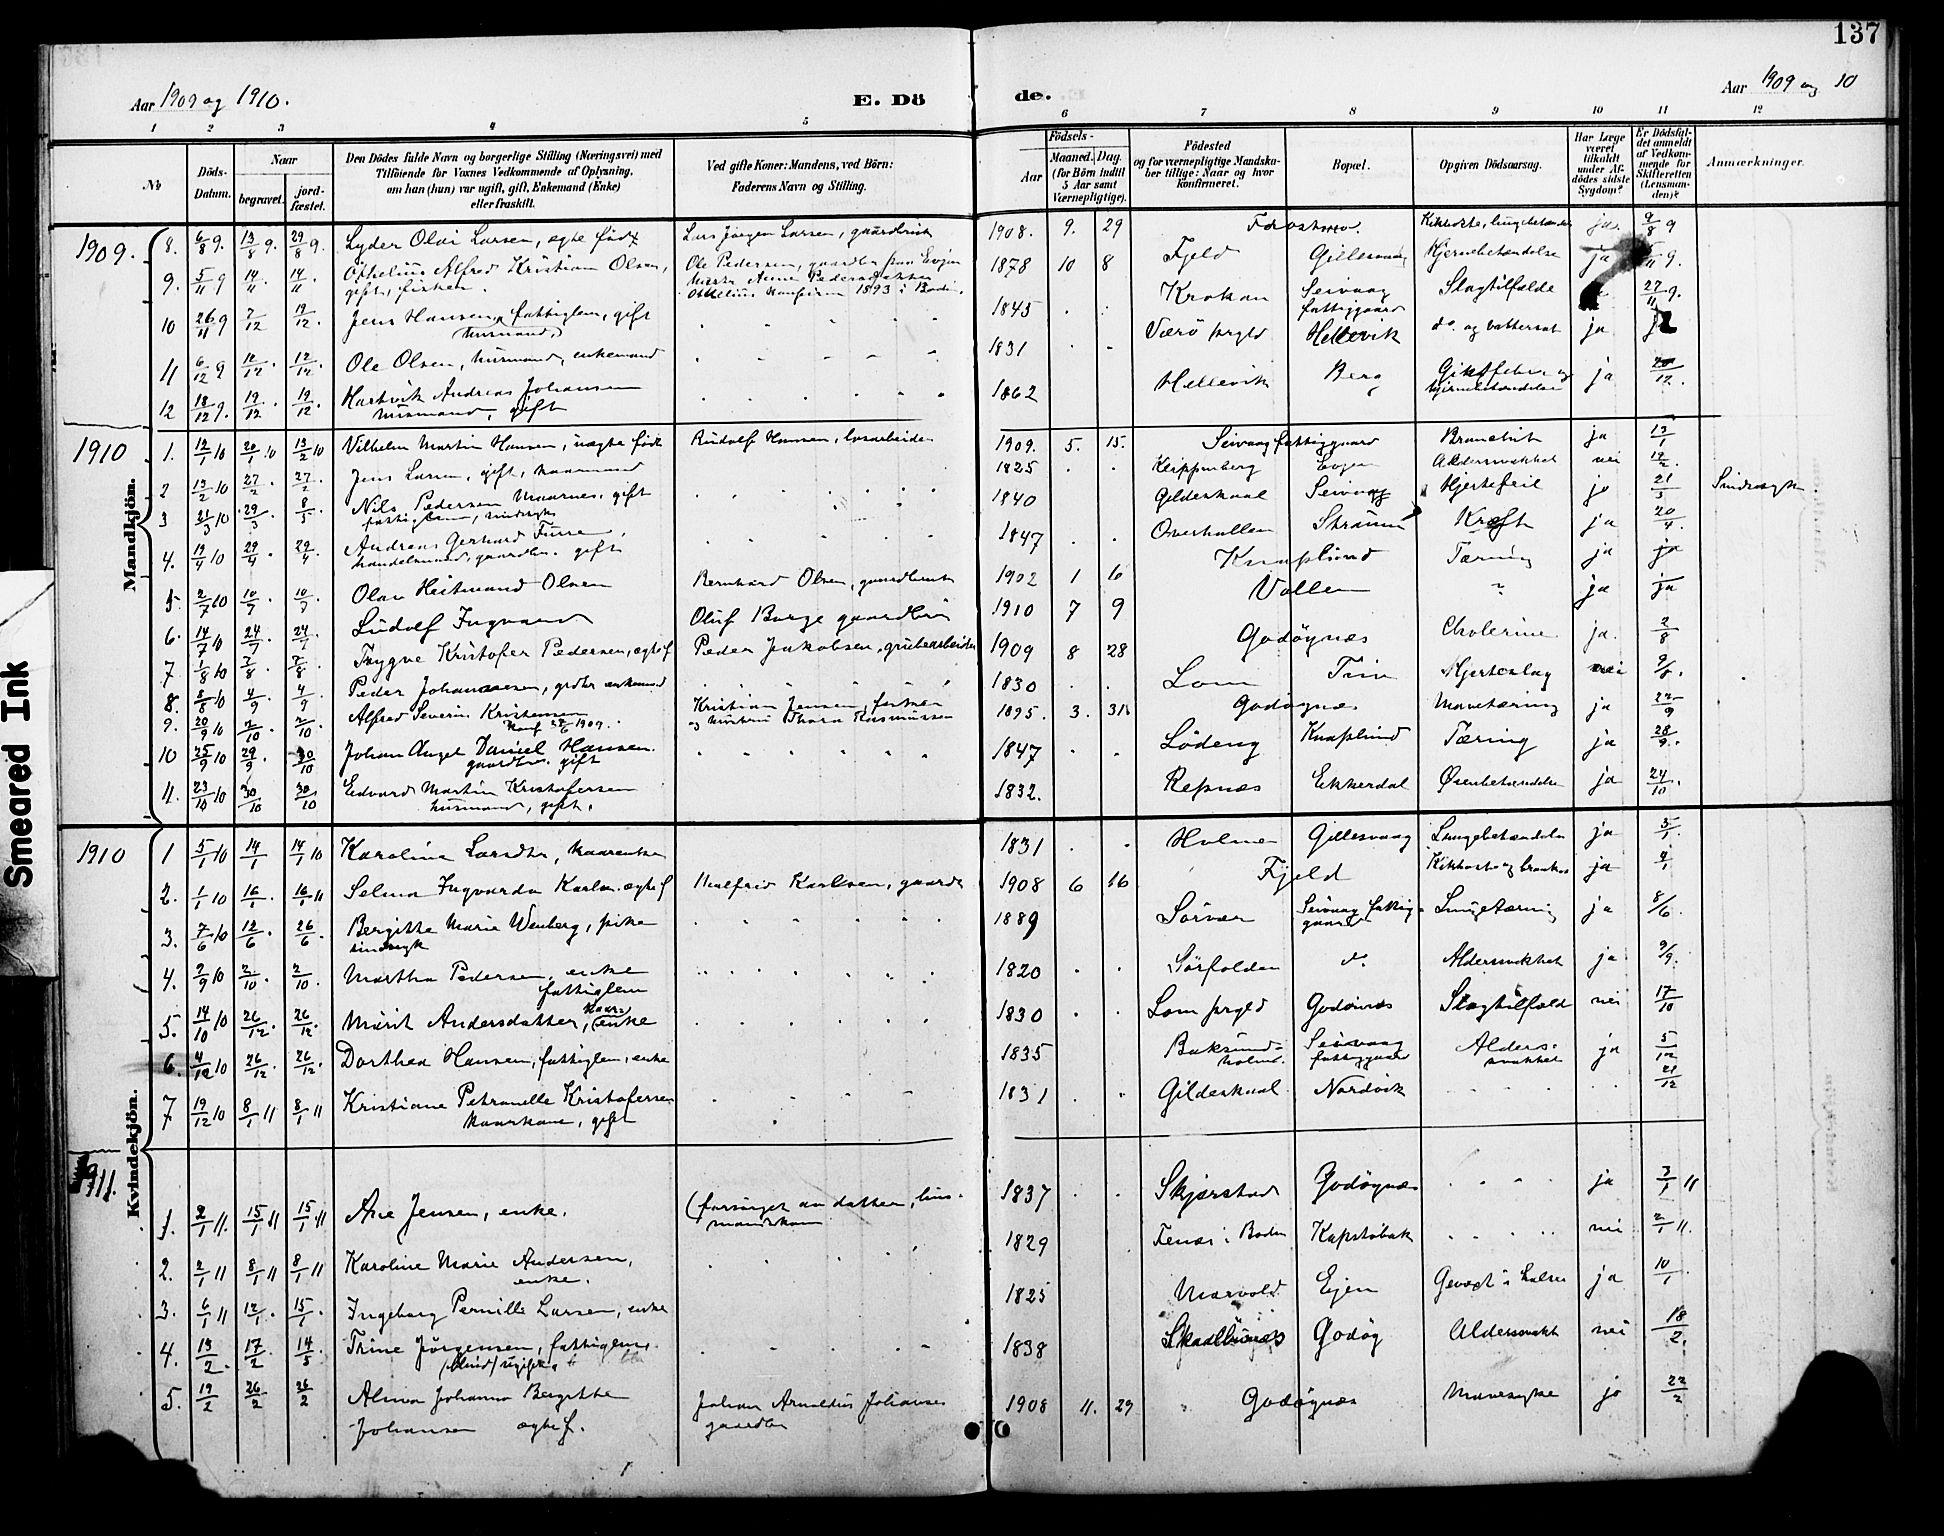 137
Aar 1909 og 1910.
E. Dö
de.
Aar 1909 og 10
1 2 3 4 5 6 7 8 9 10 11 12
No
Döds-Datum.
Naar
begravet.
jord-fæstet.
Den Dödes fulde Navn og borgerlige Stilling (Næringsvei) med
Tilföiende for Voxnes Vedkommende af Oplysning,
om han (hun) var ugift, gift, Enkemand (Enke)
eller fraskilt.
Ved gifte Koner: Mandens, ved Börn:
Faderens Navn og Stilling.
Födsels-
Aar
Maaned. Dag.
(for Börn indtil
5 Aar samt
Værnepligtige).
Födested
og for værnepligtige Mandska-
ber tillige: Naar og hvor
konfirmeret.
Bopæl.
Opgiven Dödsaarsag.
Har Læge
været
tilkaldt
under Af-
dödes sidste
Sygdom?
Er Dödsfal-
det anmeldt
af Vedkom-
mende for
Skifteretten
(Lensman-
den)?
Anmærkninger.
Mandkjön.
1909.
8. 6/8 9. 13/8 9. 29/8 9. Lyder Olai Larsen, egte født Lars Jørgen Larsen, gaardbruk 1908. 9. 29 Kikhoste, ja 9/8 9
9. 5/11 9 14/11 14/11 Othelius Alfred Kristian Olsen, Ole Pedersen, gaardbr paa Evjen 1878 10 8 Fjeld Gillesvaag Hjernebetændelse ja
gift, fisker. Othelius konfirm 1893 i Bodin.
10 26/11 9 7/12 19/12. Jens Hansen, fattiglem, gift 1845 Krokan Seivaag Slagtilfælde 27/11 9.
husmand fattiggaard
11 6/12 9 12/12 12/12. Ole Olsen, husmand, enkemand 1831 Værø prgld Hellevik do. og vattersot ja
12 18/12 9. 19/12 19/12. Hartvik Andreas Johansen 1862 Hellevik Berg Giktfeber og ja
husmand, gift hjernebetændelse
1910
1. 12/1 10 20/1 10 13/2 10 Vilhelm Martin Hansen, uegte født Rudolf Hansen, løsarbeider 1909. 5. 15. Seivaag fattiggaard ja 13/1
2 19/2 10 27/2 27/2 Jens Larsen, gift, kaarmand 1825 Klippenberg Evjen Alderssvakhet nei 19/2.
3 21/3 10 29/3 8/5 Nils Pedersen Maarnes, gift 1840 Gildeskaal Seivaag Hjertefeil ja 21/3 Sindssyk.
fattiglem, sindssyk
4. 19/4 10 29/4 29/4 Andreas Gerhard Furre 1847 Overhallen Straum Kræft ja 20/4.
handelsmand, gaardbr. gift
5. 2/7 10 10/7 10/7. Olav Hitmand Olsen Bernhard Olsen, gaardbruk 1902 1 16 Knaplund Tæring ja ja
6. 14/7 10 24/7 24/7. Ludolf Ingvard Oluf Borge gaardbr 1910 7 9 Vollen " ja ja
7 1/8 10 7/8 7/8. Trygve Kristofer Pedersen, egte f Peder Jakobsen, grubearbeider 1909 8 28 Godøynes Cholerine ja. 2/8
8. 8/8 10 4/9 4/9 Peder Johannesen, grdbr enkemand 1830 Lom Hjerteslag nei
9. 20/9 10 2/10 2/10. Alfred Severin Kristensen Kristian Jensen, 1895. 3. 31 Godøynes Mavetæring ja 22/9
1909. og hustru Thora Rasmussen
10 25/9 10 29/9 30/10 Johan Angel Daniel Hansen 1847 Lødeng Knaplund Tæring ja 28/9.
gaardbr. gift
11. 23/10 10 30/10 30/10 Edvard Martin Kristofersen 1832. Repnæs Ekkerdal ja 24/10.
husmand, gift.
Kvindekjön.
1910
1 5/1 10 14/1 14/1 10 Karoline Larsdtr, kaarenke 1831 Holme Gillesvaag Lungebetændelse ja 5/1.
2. 1/1 10 16/1 16/1 11 Selma Ingvarda Karlsen egte f Halfrid Karlsen, gaardbr 1908 6 16 Fjeld Kikhoste og bronkit ja 4/1
3. 7/6 10 12/6 26/6. Bergitte Marie Wenberg, pike 1889 Sørvær Seivaag fattig- Lungetæring ja 8/6.
sindssyk gaard
4. 2/9 10 2/10 2/10. Martha Pedersen, enke 1820 Sørfolden do. Alderssvakhet ja 9/9.
fattiglem
5. 14/10 10 26/12 26/12. Marit Andersdatter, kaarenke 1830 Lom prgld Godønes Slagtilfæld nei 17/10
6. 4/12 10 26/12 26/12. Dorthea Hansen, fattiglem, enke 1835 Buksund- Seivaag Alders- ja 5/12
holmd. fattiggaard svakhet
7 19/12 10 8/1 11 8/1 11 Kristiane Petronelle Kristofersen 1831 Gildeskaal Nordvik 21/12
kaarkone, gift
1911.
1. 2/1 11. 15/1 11 15/1 11 Ane Jensen, enke. (forsørget av datter, hus- 1837 Skjerstad Godøynes ja 3/1 11
mandskone
2. 2/1 11 8/1 11 8/1 11 Karoline Marie Andersen, 1829 Fenes i Bodin Kapstøbak nei 2/1 11.
enke.
3. 6/1 11 12/1 15/1. Ingeborg Pernille Larsen, enke 1825 Marvold Ejen Gevext i halsen ja 10/1.
4. 13/2. 17/2 14/5 Trine Jørgensen, fattiglem, 1838 Godøy Alderssvakt nei 18/2.
(blind)
5. 19/2 26/2 26/2 Alma Johanna Bergitte Johan Arnoldus Johansen 1908 11. 29 Godøynes Mavesyke ja 22/2
Johansen egte f. gaardbr
Smeared Ink